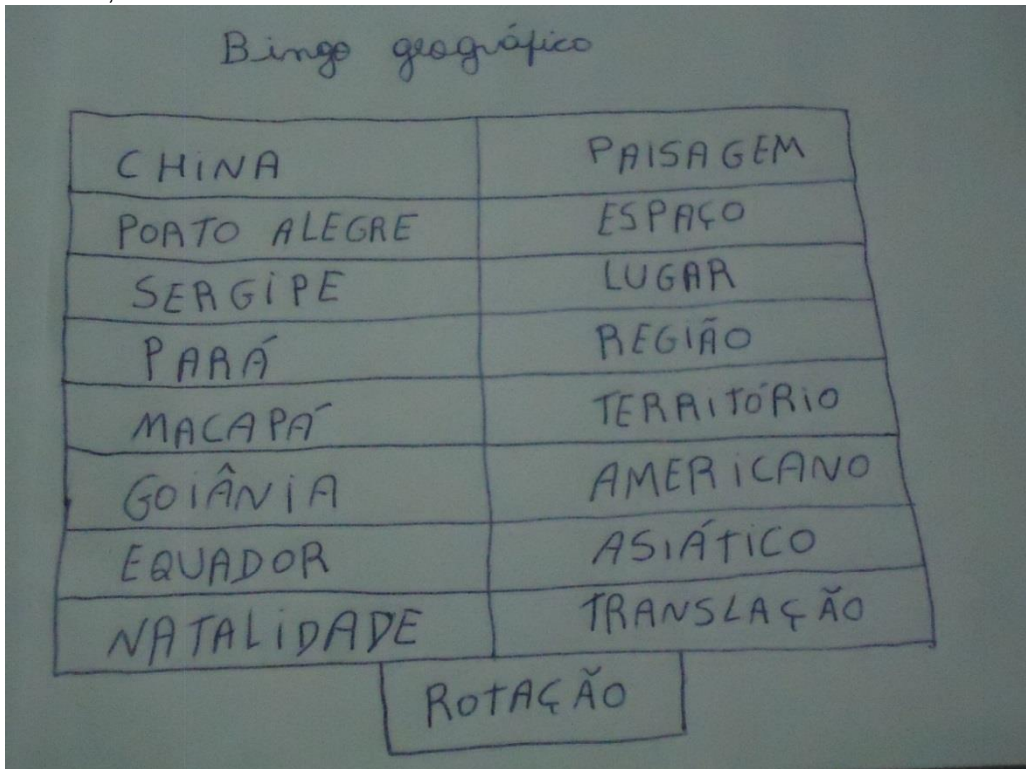 Bingo geográfico
CHINA PAISAGEM
PORTO ALEGRE ESPAÇO
SERGIPE LUGAR
PARÁ REGIÃO
MACAPÁ TERRITÓRIO
GOIÂNIA AMERICANO
EQUADOR ASIÁTICO
NATALIDADE TRANSLAÇÃO
ROTAÇÃO